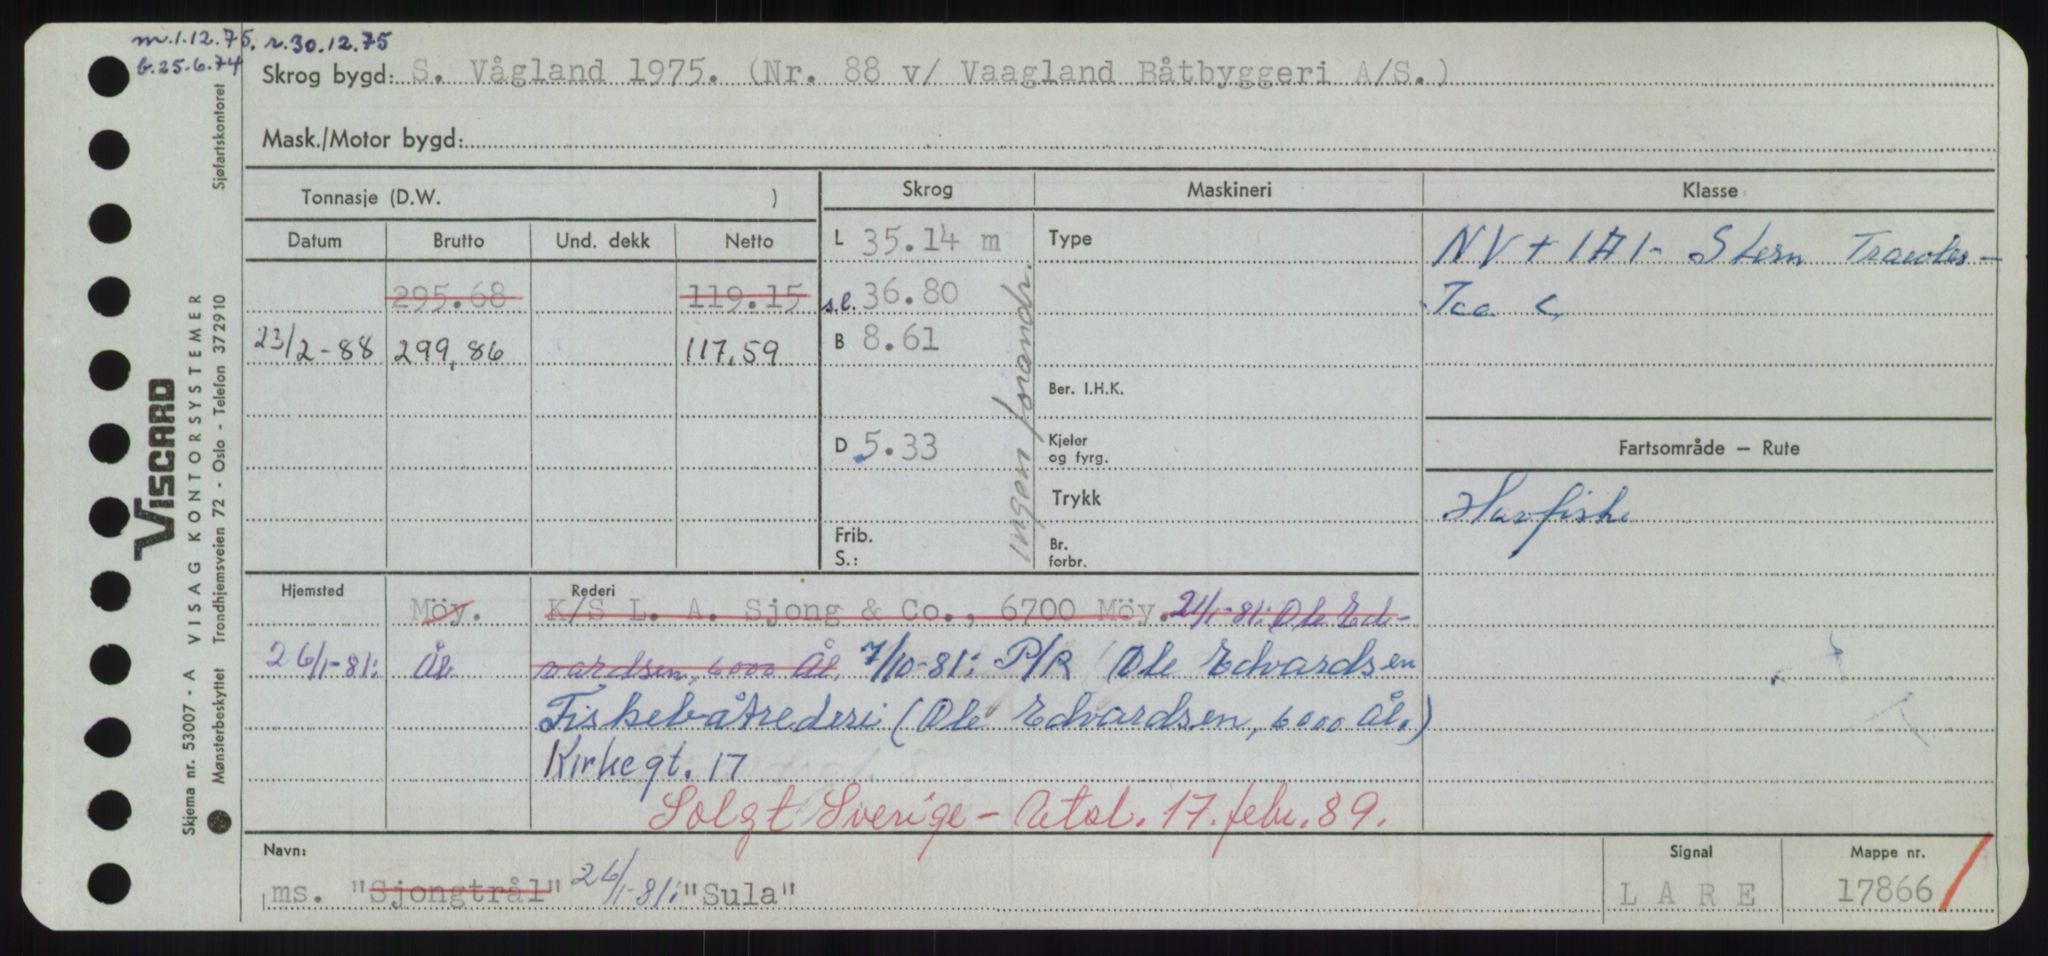 m.1.12.75, r.30.12.75
b.25.6.74
Skrog bygd: S. Vågland 1975. (Nr. 88 v/ Vaagland Båtbyggeri A/S.)
Mask./Motor bygd:
Tonnasje (D.W. )
Skrog
Maskineri
Klasse
Datum Brutto Und. dekk Netto
L 35.14 m
Type
NV + 1A1- Stern Trawler -
295.68 119.15
s.l. 36.80
Ice C
23/2-88 299,86 117,59
B 8.61
ingen forandr.
Ber. I.H.K.
D 5.33
Kjeler
og fyrg.
Fartsområde — Rute
Trykk
Havfiske
Frib.
S.:
Br.
forbr.
Hjemsted
Rederi
Möy. K/S L. A. Sjong & Co., 6700 Möy. 21/1-81: Ole Ed-
26/1-81: Ål. vardsen, 6000 Ål. 7/10-81: P/R Ole Edvardsen
Fiskebåtrederi (Ole Edvardsen, 6000 Ål.)
Kirkegt. 17
Solgt Sverige - 17. febr. 89.
Navn:
ms. "Sjongtrål" 26/1-81: "Sula"
Signal
LARE
Mappe nr.
17866
Skjema nr. 53007 - A VISAG KONTORSYSTEMER
VISCARD
Mønsterbeskyttet Trondhjemsveien 72 - Oslo - Telefon 372910 Sjøfartskontoret